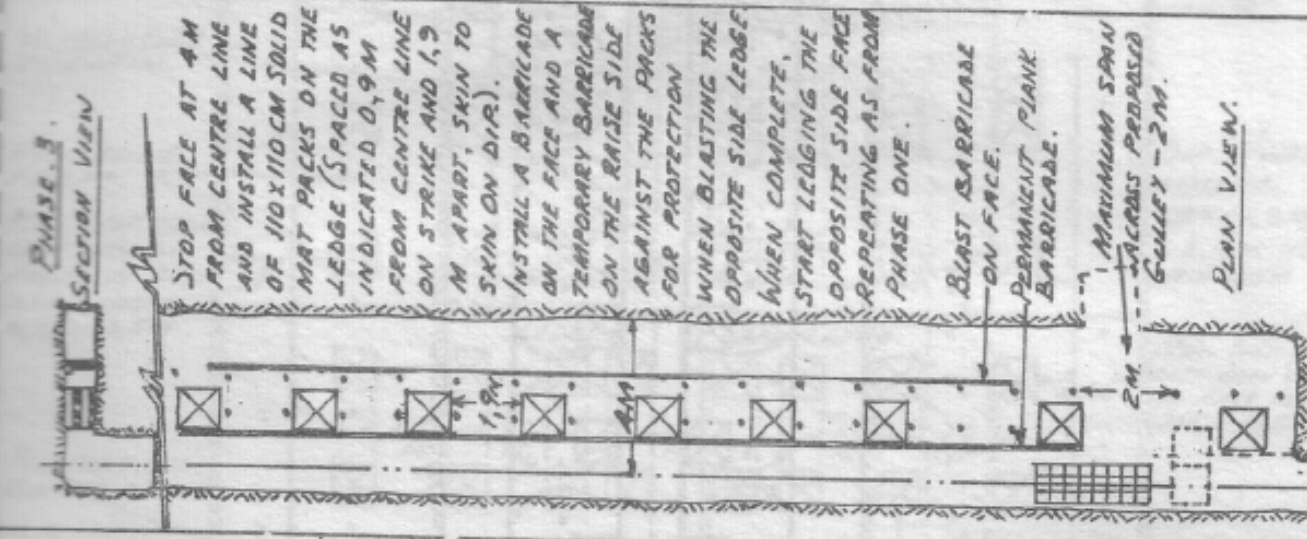 PHASE. 3.
SECTION VIEW
STOP FACE AT 4 M
FROM CENTRE LINE
AND INSTALL A LINE
OF 110 X 110 CM SOLID
MAT PACKS ON THE
LEDGE (SPACED AS
INDICATED 0,9 M
FROM CENTRE LINE
ON STRIKE AND 1,9
M APART, SKIN TO
SKIN ON DIP).
INSTALL A BARRICADE
ON THE FACE AND A
TEMPORARY BARRICADE
ON THE RAISE SIDE
AGAINST THE PACKS
FOR PROTECTION
WHEN BLASTING THE
OPPOSITE SIDE LEDGE.
WHEN COMPLETE,
START LEDGING THE
OPPOSITE SIDE FACE
REPEATING AS FROM
PHASE ONE.
BLAST BARRICADE
ON FACE.
PERMANENT PLANK
BARRICADE.
MAXIMUM SPAN
ACROSS PROPOSED
GULLEY - 2M.
PLAN VIEW.
1,9M
4M
2M